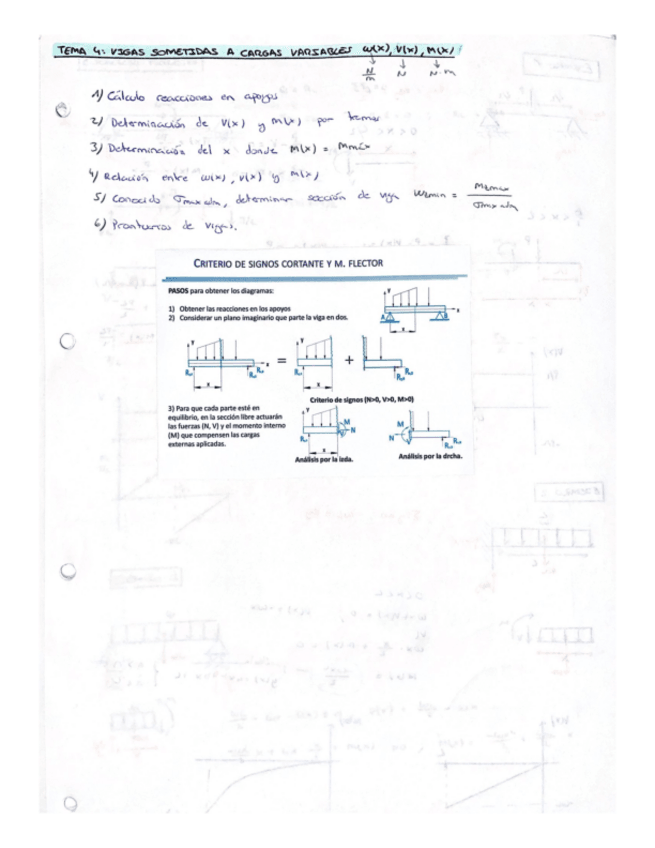 TEMA 4: VIGAS SOMETIDAS A CARGAS VARIABLES w(x), V(x), M(x)
N/m N N·m
1) Cálculo reacciones en apoyos
2) Determinación de V(x) y M(x) por tramos
3) Determinación del x donde M(x) = Mmáx
4) Relación entre w(x), V(x) y M(x)
5) Conocido σmax adm, determinar sección de viga Wzmin = Mzmax / σmax adm
6) Prontuarios de vigas.
CRITERIO DE SIGNOS CORTANTE Y M. FLECTOR
PASOS para obtener los diagramas:
1) Obtener las reacciones en los apoyos
2) Considerar un plano imaginario que parte la viga en dos.
Y
A B x
x
Y
x
=
Y
+
x
x
Criterio de signos (N>0, V>0, M>0)
3) Para que cada parte esté en
equilibrio, en la sección libre actuarán
las fuerzas (N, V) y el momento interno
(M) que compensen las cargas
externas aplicadas.
Y
M
N
x
M
N
Análisis por la izda.
Análisis por la drcha.